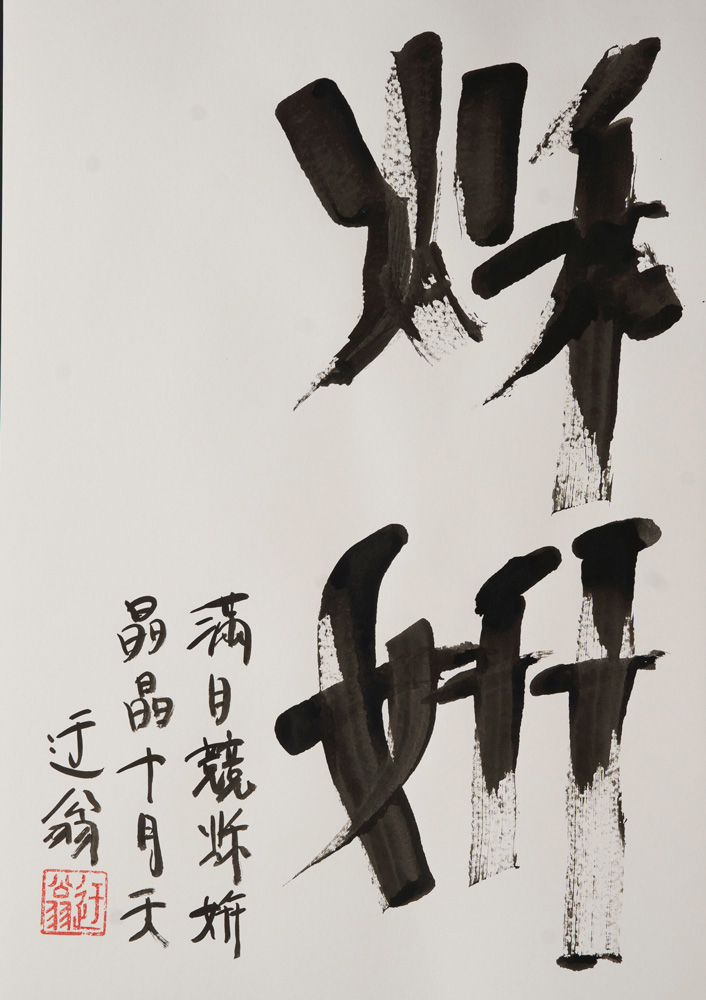 烁
妍
滿目競烁妍
晶晶十月天
迂翁
迂翁